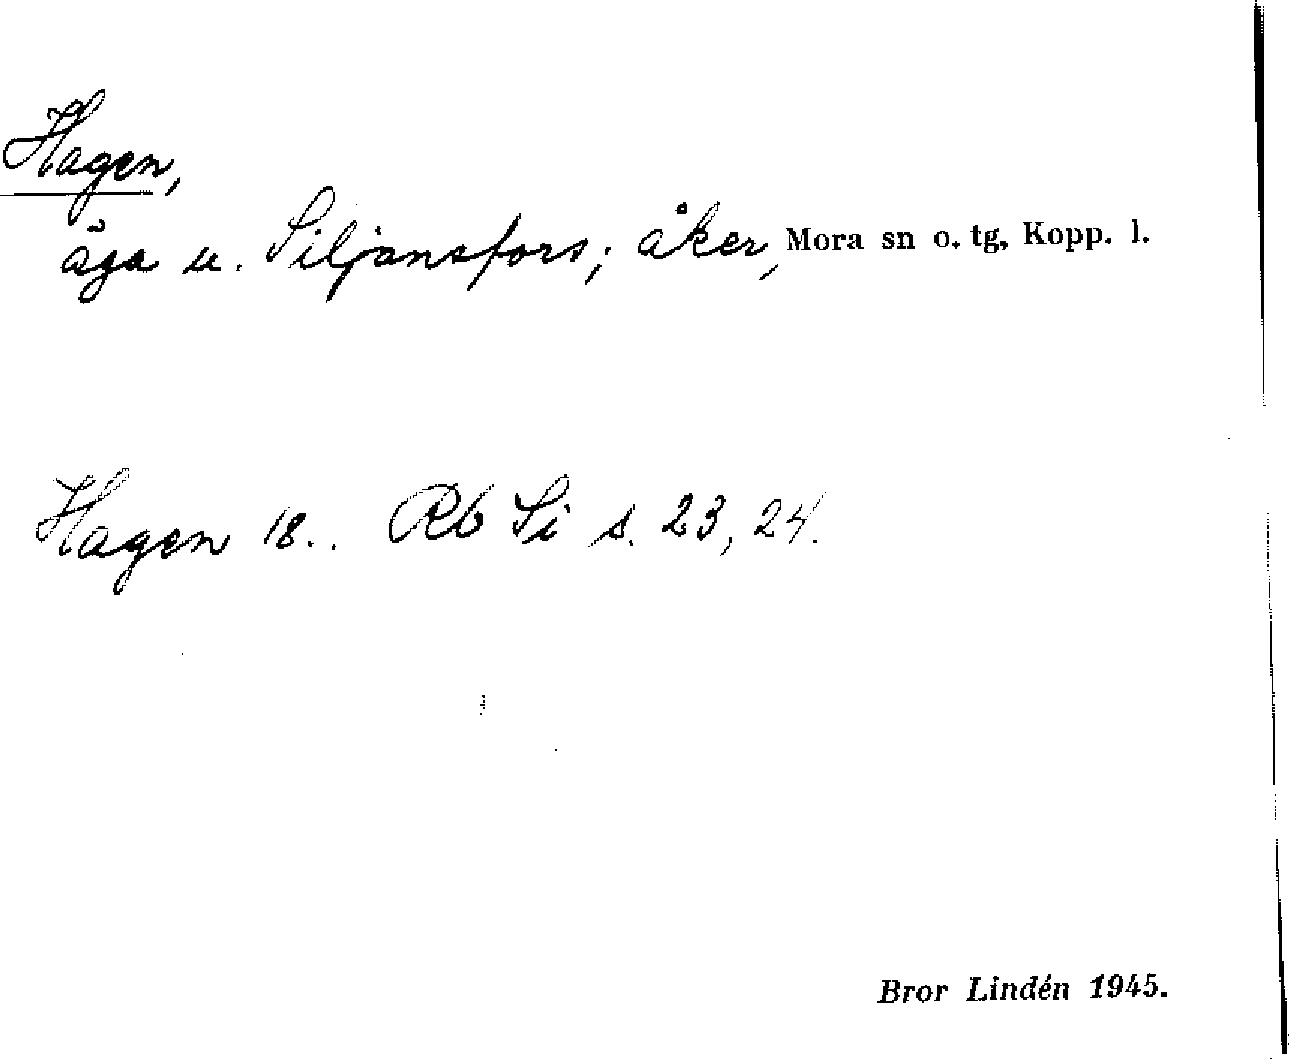 Hagen,
äga u. Siljansfors; åker, Mora sn o. tg, Kopp. l.
Hagen 18.. Rb Si s. 23, 24.
Bror Lindén 1945.